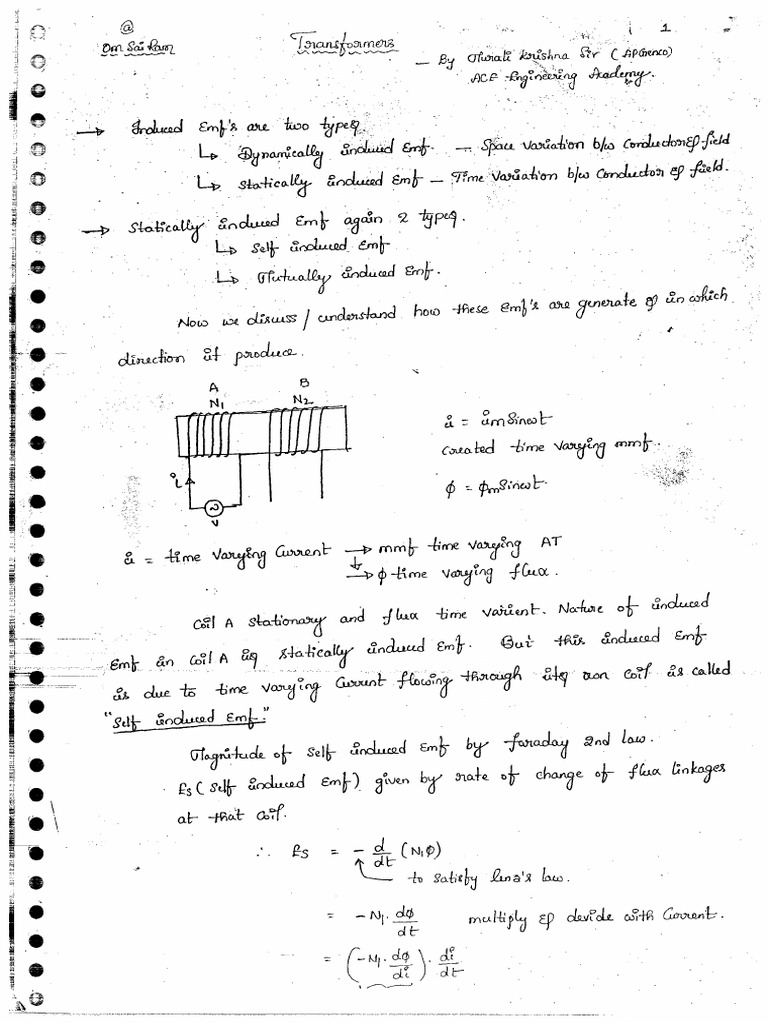 @ 1
Om Sai Ram Transformers
— By Murali Krishna Sir (APGenco)
ACE Engineering Academy.
→ Induced Emf's are two types.
↳ Dynamically induced Emf. — Space Variation b/w Conductor & field
↳ Statically induced Emf — Time Variation b/w Conductor & field.
→ Statically induced Emf again 2 types.
↳ Self induced Emf
↳ Mutually induced Emf.
Now we discuss / understand how these Emf's are generate & in which
direction it produce.
A B
N1 N2
i = imSinωt
Created time varying mmf.
ϕ = ϕmSinωt.
i
V
i = time Varying Current → mmf time varying AT
→ ϕ time varying flux.
Coil A Stationary and flux time varient. Nature of induced
Emf in Coil A is Statically induced Emf. But this induced Emf
is due to time Varying Current flowing through its own Coil is called
"Self induced Emf."
Magnitude of Self induced Emf by faraday 2nd law.
Es (Self induced Emf) given by rate of change of flux linkages
at that Coil.
∴ Es = - d/dt (N1ϕ)
to satisfy lenz's law.
= -N1. dϕ/dt multiply & devide with Current.
= (-N1. dϕ/di). di/dt